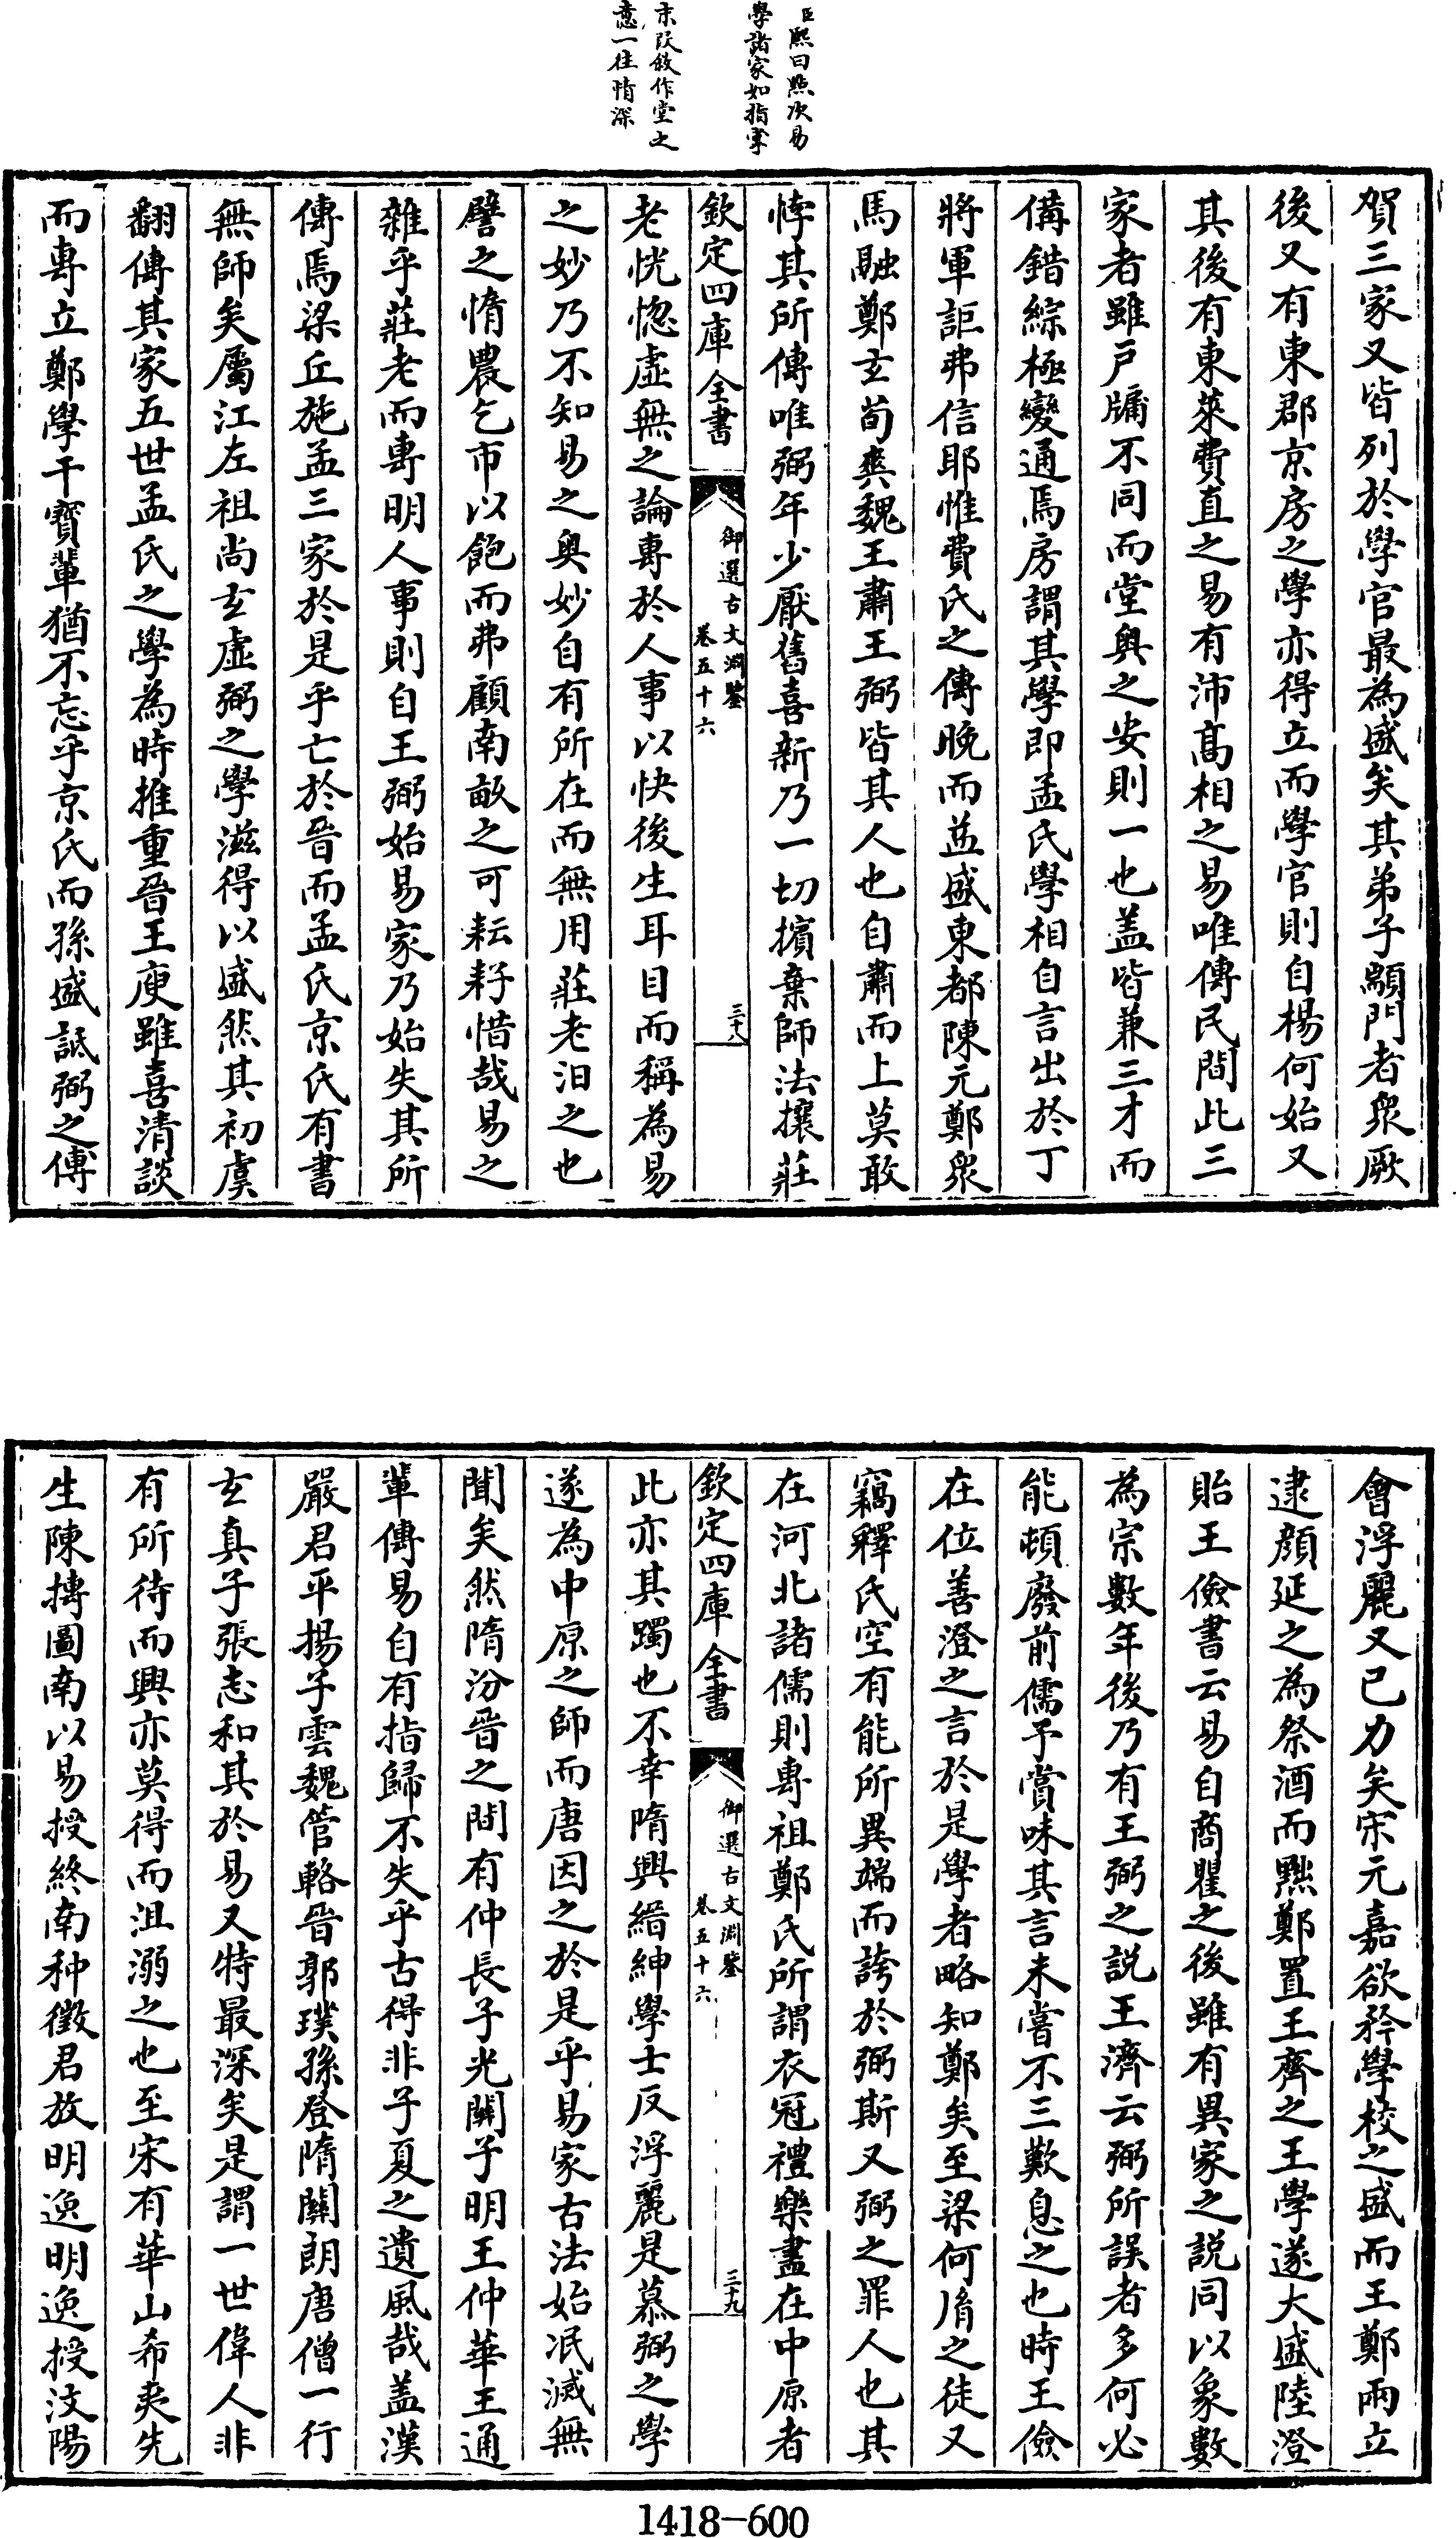 臣熙曰㸃次易
學諸家如指掌
末段敘作堂之
意一往情深
賀三家又皆列於學官最為盛矣其弟子顓門者衆厥
後又有東郡京房之學亦得立而學官則自楊何始又
其後有東萊費直之易有沛高相之易唯傳民間此三
家者雖戶牖不同而堂奥之安則一也盖皆兼三才而
備錯綜極變通焉房謂其學即孟氏學相自言出於丁
將軍詎弗信耶惟費氏之傳晚而益盛東都陳元鄭衆
馬融鄭玄荀爽魏王肅王弼皆其人也自肅而上莫敢
悖其所傳唯弼年少厭舊喜新乃一切擯棄師法攘莊
欽定四庫全書
御選古文淵鑒
卷五十六
三十八
老恍惚虚無之論專於人事以快後生耳目而稱為易
之妙乃不知易之奥妙自有所在而無用莊老汨之也
譬之惰農乞市以飽而弗顧南畝之可耘耔惜哉易之
雜乎莊老而專明人事則自王弼始易家乃始失其所
傳焉梁丘施孟三家於是乎亡於晉而孟氏京氏有書
無師矣屬江左祖尚玄虛弼之學滋得以盛然其初虞
翻傳其家五世孟氏之學為時推重晉王庾雖喜清談
而專立鄭學干寶輩猶不忘乎京氏而孫盛詆弼之傅
會浮麗又已力矣宋元嘉欲矜學校之盛而王鄭兩立
逮顔延之為祭酒而黜鄭置王齊之王學遂大盛陸澄
貽王儉書云易自商瞿之後雖有異家之説同以象數
為宗數年後乃有王弼之説王濟云弼所誤者多何必
能頓廢前儒予賞味其言未嘗不三歎息之也時王儉
在位善澄之言於是學者略知鄭矣至梁何胤之徒又
竊釋氏空有能所異端而誇於弼斯又弼之罪人也其
在河北諸儒則專祖鄭氏所謂衣冠禮樂盡在中原者
欽定四庫全書
御選古文淵鑒
卷五十六
三十九
此亦其躅也不幸隋興縉紳學士反浮麗是慕弼之學
遂為中原之師而唐因之於是乎易家古法始泯滅無
聞矣然隋汾晉之間有仲長子光關子明王仲華王通
軰傳易自有指歸不失乎古得非子夏之遺風哉盖漢
嚴君平揚子雲魏管輅晉郭璞孫登隋關朗唐僧一行
玄真子張志和其於易又特最深矣是謂一世偉人非
有所待而興亦莫得而沮溺之也至宋有華山希夷先
生陳摶圖南以易授終南种徵君放明逸明逸授汶陽
1418-600